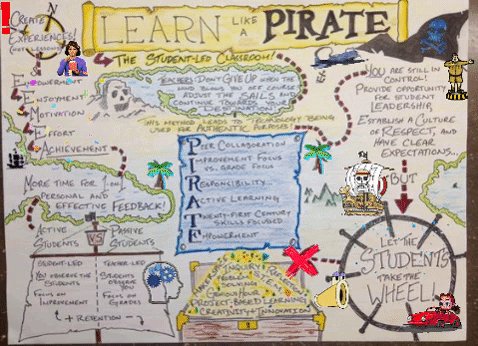 LEARN LIKE A PIRATE
CREATE
EXPERIENCES!
(NOT LESSONS)
THE STUDENT-LED CLASSROOM!
TEACHERS: DON'T GIVE UP WHEN THE
WIND BLOWS YOU OFF COURSE
ADJUST THE SAILS AND
CONTINUE TOWARDS YOUR
DESTINATION.
THIS METHOD LEADS TO TECHNOLOGY BEING
USED FOR AUTHENTIC PURPOSES!
EMPOWERMENT
ENJOYMENT
MOTIVATION
EFFORT
ACHIEVEMENT
MORE TIME FOR 1-ON-1
PERSONAL AND
EFFECTIVE FEEDBACK!
PEER COLLABORATION
IMPROVEMENT FOCUS
VS. GRADE FOCUS
RESPONSIBILITY
ACTIVE LEARNING
TWENTY-FIRST CENTURY
SKILLS FOCUSED
EMPOWERMENT
YOU ARE STILL IN
CONTROL!
PROVIDE OPPORTUNITY
FOR STUDENT
LEADERSHIP
ESTABLISH A CULTURE
OF RESPECT, AND
HAVE CLEAR
EXPECTATIONS...
BUT
LET THE
STUDENTS
TAKE THE
WHEEL!
ACTIVE STUDENTS
VS
PASSIVE STUDENTS
STUDENT-LED
YOU OBSERVE THE
STUDENTS
FOCUS ON
IMPROVEMENT
TEACHER-LED
STUDENTS
OBSERVE
YOU
FOCUS ON
GRADES
+ RETENTION -
INQUIRY
PROJECT-BASED LEARNING
CREATIVITY + INNOVATION